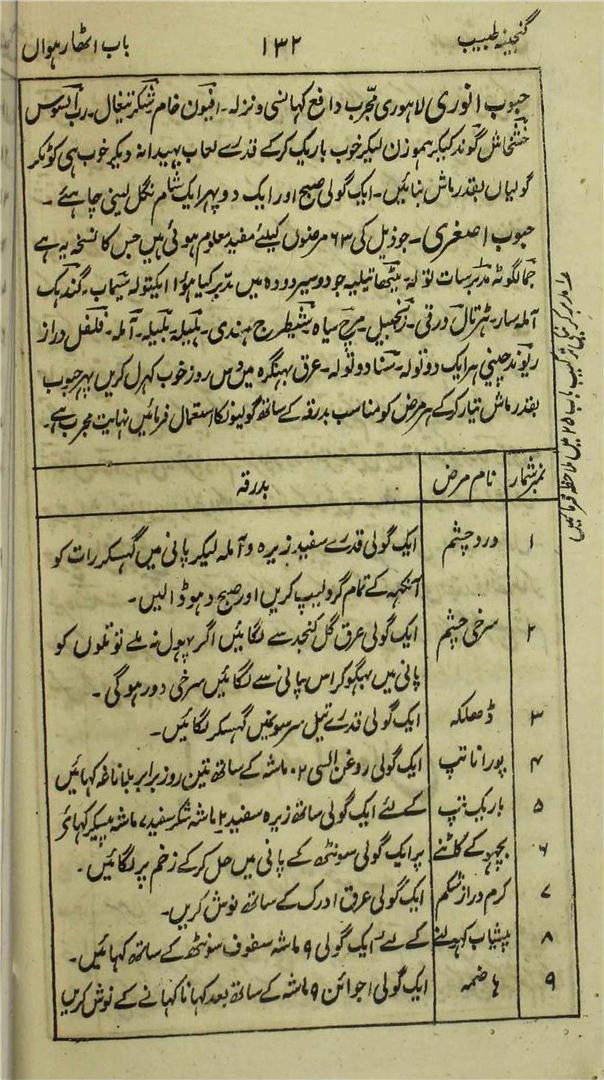 گنجینہ طبیب
۱۳۲
باب اٹھارہواں
حبوب انوری لاہوری مجرب دافع کہانسی و نزلہ۔ افیون خام شکر تیغال۔ رب السوس
خشخاش گوند کیکر ہموزن لیکر خوب باریک کرکے قدرے لعاب بہیدانہ دیکر خوب ہی کوٹکر
گولیاں بقدر ماش بنائیں۔ ایک گولی صبح اور ایک دوپہر ایک شام نگل لینی چاہئے۔
حبوب اصغری۔ جو ذیل کی ۶۳ مرضوں کیلئے مفید معلوم ہوئی ہیں جس کا نسخہ یہ ہے
جمالگوٹہ مدبر سات تولہ۔ میٹھا تیلیہ جو دو سیر دودہ میں مدبر کیا ہوا ایکتولہ سیماب۔ گندہک
آملہ سار۔ ہڑتال ورقی۔ زنجبیل۔ مرچ سیاہ شیطرج ہندی۔ ہلیلہ بلیلہ۔ آملہ۔ فلفل دراز
ریوند چینی ہر ایک دو تولہ۔ سنا دو تولہ۔ عرق بہنگرہ میں دس روز خوب کہرل کریں پہر حبوب
بقدر ماش تیار کرکے ہر مرض کو مناسب بدرقہ کے ساتھ گولیونکا استعمال فرمائیں نہایت مجرب ہے۔
مدبر کرنیکی ترکیب باب ۲۵ میں ملاحظہ فرمائیں
نمبر شمار نام مرض بدرقہ
۱ درد چشم ایک گولی قدرے سفید زیرہ و آملہ لیکر پانی میں گہسکر رات کو
آنکہہ کے تمام گرد لیپ کریں اور صبح دہو ڈالیں۔
۲ سرخی چشم ایک گولی عرق گل کنجد سے لگائیں اگر پہول نہ ملے تو تلوں کو
پانی میں بہگو کر اس پانی سے لگائیں سرخی دور ہوگی۔
۳ ڈھلکہ ایک گولی قدرے تیل سرسونمیں گہسکر لگائیں۔
۴ پورانا تپ ایک گولی روغن السی ۲ ماشہ کے ساتھ تین روز برابر بلاناغہ کہائیں
۵ باریک تپ کے لئے ایک گولی ساتھ زیرہ سفید ۲ ماشہ شکر سفید ۷ ماشہ پیسکر کہائے
۶ بچہو کے کاٹنے پر ایک گولی سونٹھ کے پانی میں حل کرکے زخم پر لگائیں۔
۷ کرم دراز شکم ایک گولی عرق ادرک کے ساتھ نوش کریں۔
۸ پیشاب کہولنے کے لئے ایک گولی ۹ ماشہ سفوف سونٹھ کے ساتھ کہائیں۔
۹ ہاضمہ ایک گولی اجوائن ۹ ماشہ کے ساتھ بعد کہانا کہانے کے نوش کریں